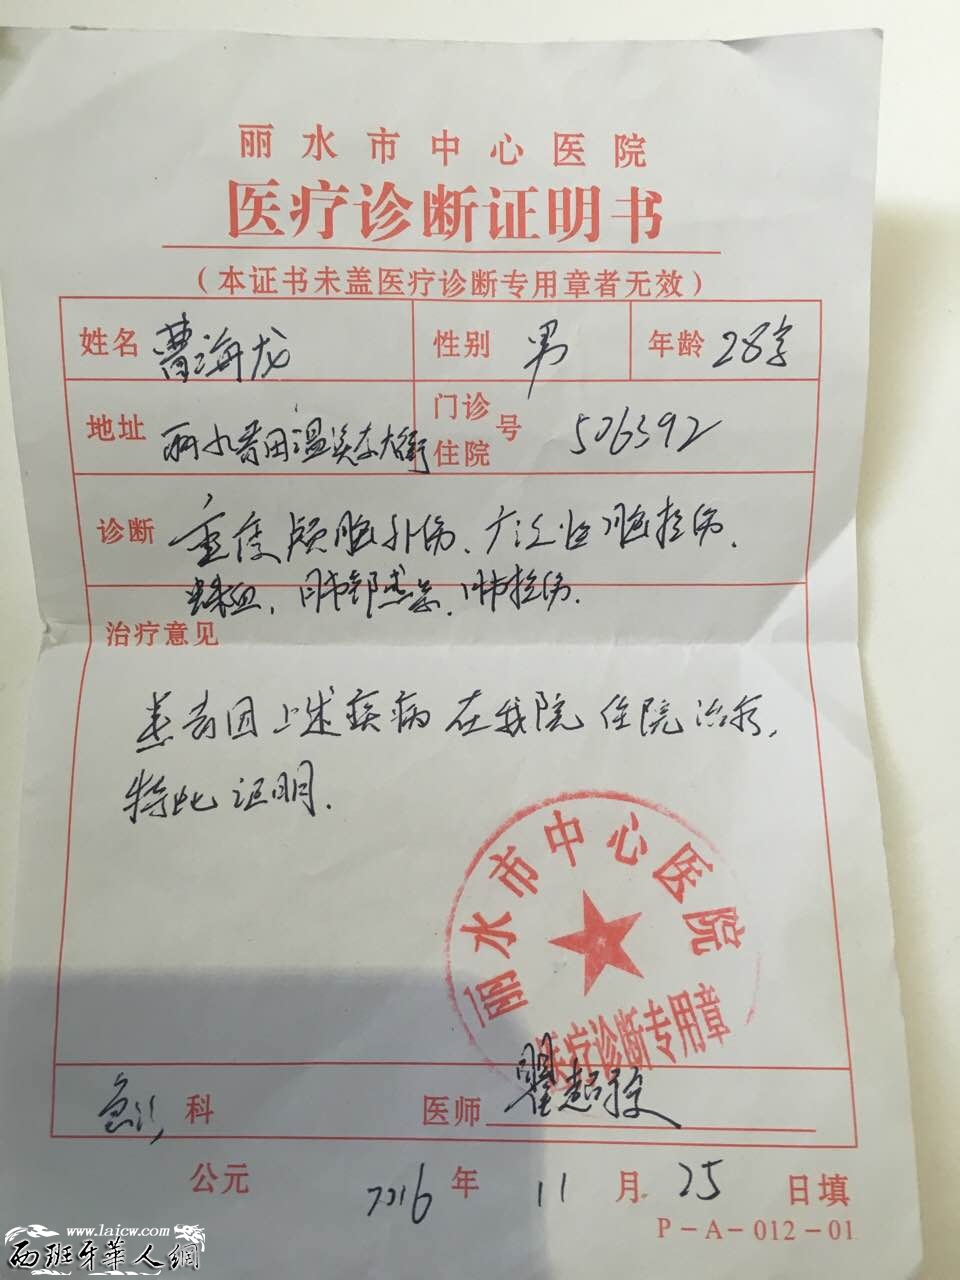 丽水市中心医院
医疗诊断证明书
（本证书未盖医疗诊断专用章者无效）
姓名 曹海龙 性别 男 年龄 28岁
地址 丽水青田温溪东大街 门诊住院号 506392
诊断 重度颅脑外伤、广泛性脑挫伤、
出血，肺部感染、肺挫伤.
治疗意见
患者因上述疾病在我院住院治疗，
特此证明.
丽水市中心医院
医疗诊断专用章
急诊科 医师
公元 2016 年 11 月 25 日填
P-A-012-01
www.laicw.com
西班牙華人網